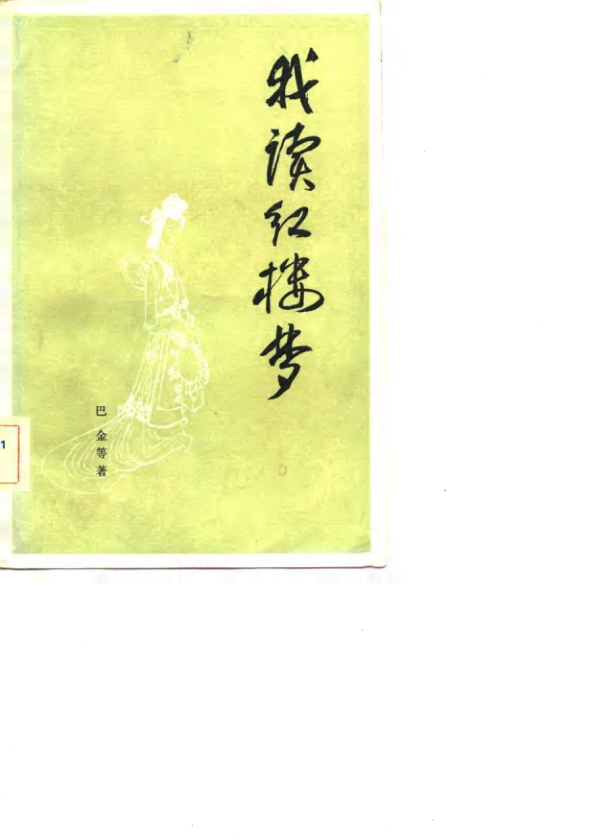 我读红楼梦
巴金等著
1